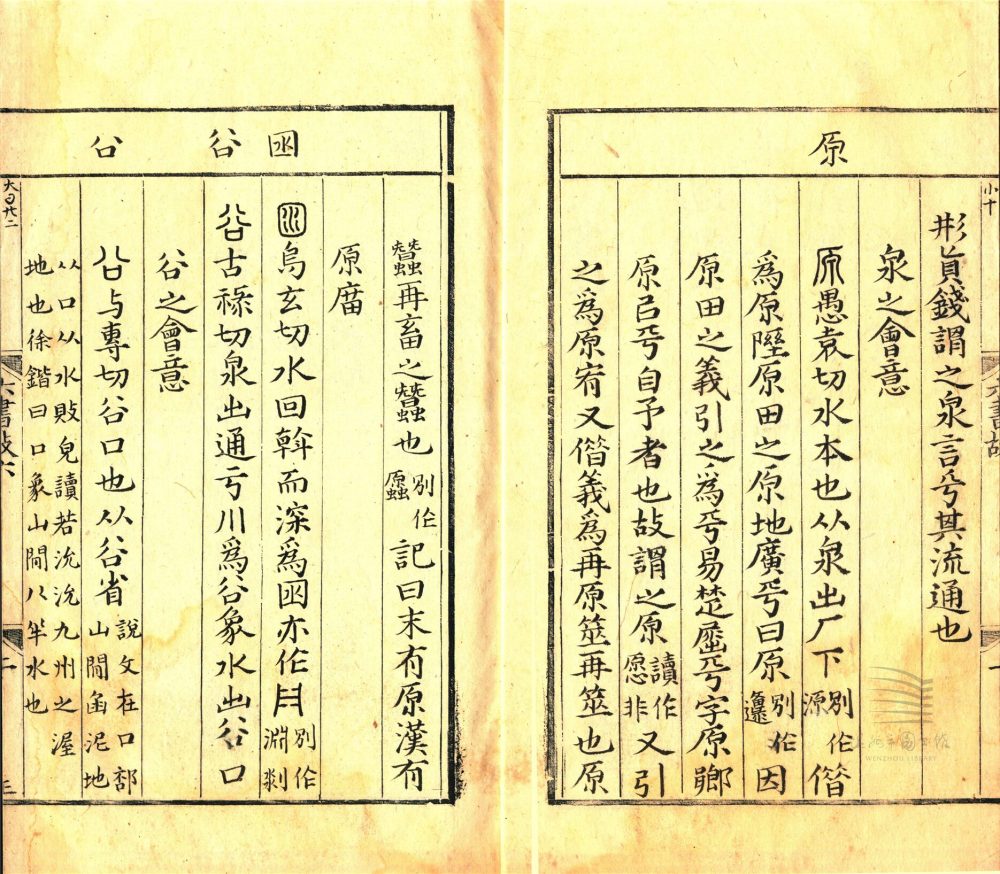 原
小十
形㒵錢謂之泉言乎其流通也
泉之會意
原愚袁切水本也从泉出厂下別作源偕
爲原隰原田之原地廣乎曰原別作邍因
原田之義引之爲乎易楚屈平字原鄉
原吕乎自予者也故謂之原讀作愿非又引
之爲原宥又偕義爲再原筮再筮也原
六書故
囦 谷 㕣
蠶再畜之蠶也別作螈記曰末有原漢有
原廟
烏玄切水回斡而深爲囦亦作別作淵剡
谷古祿切泉出通亏川爲谷象水出谷口
谷之會意
㕣与專切谷口也从谷省說文在口部山閒㕣泥地
从口从水敗皃讀若沇沇九州之渥
地也徐鍇曰口象山閒八半水也
六書故六
WENZHOU LIBRARY